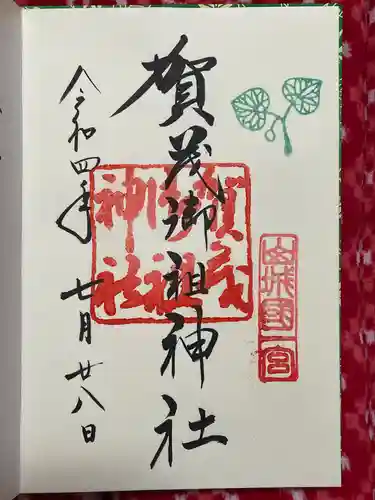 山城國一宮
賀茂御祖神社
賀茂
御祖
神社
令和四年
七月廿八日